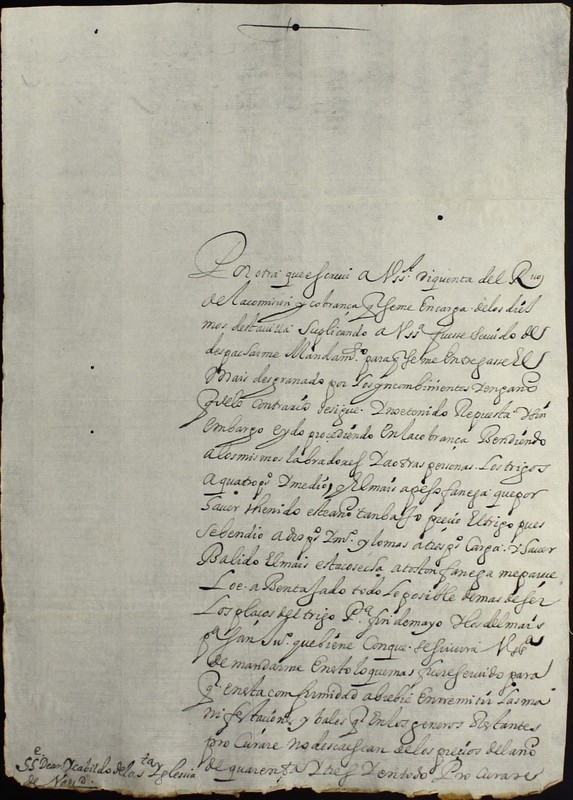 Por otra que escrivi a Vss.ª di quenta del Rvo
de la comision y cobrança q se me encarga de los diez
mos desta villa suplicando a Vss.ª fuesse servido de
despacharme Mandam.to para q se me entregasse el
Mais desgranado por los yncombinientes
q de lo contrario se sigue. No e tenido Repuesta
embargo e ydo procediendo en la cobrança Bendiendo
a los mismos labradores y a otras personas. Los trigos
a quatro p.s y medio, y el mais a peso fanega que por
haver thenido este año tan baxo precio el trigo pues
se bendio a dos p.s y m.o y lo mas a tres p.s Carga. Y haver
Balido el mais esta cosecha a toston fanega me parece
Lo e abentajado todo lo posible demas de ser
Los plaços del trigo P.ª fin de mayo y los del mais
p.ª san Ju.o que biene Conque se servira Vss.ª
de mandarme en esto lo que mas fuere servido para
q en esta comformidad abrebie en remitir las ma
nifestaciones y bales q en los generos restantes
procurare no descaescan de los precios del año
de quarenta y tres y en todo Procurare
SS.e Dean y Cabildo de la s.ta Yglesia
de